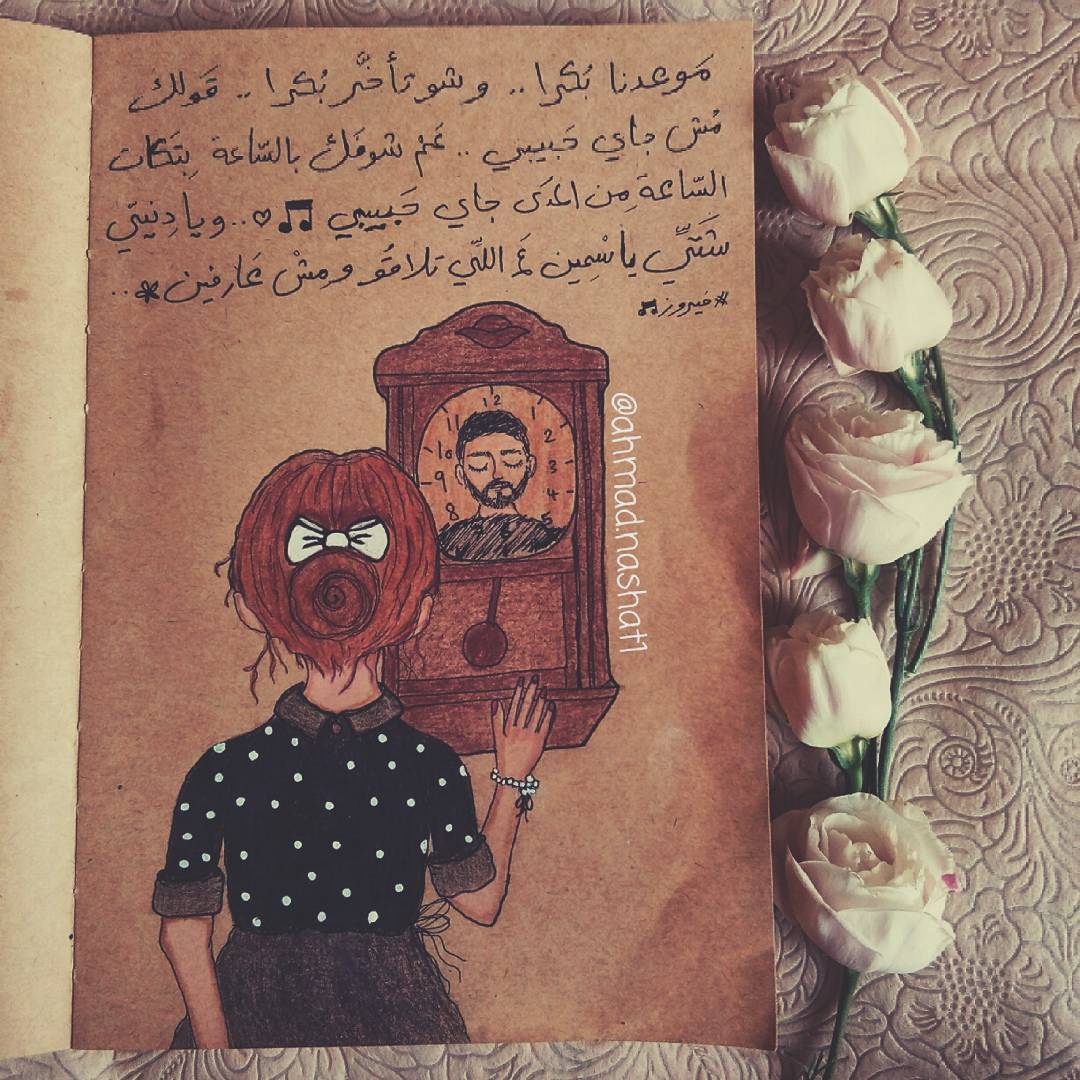 مَوعدنا بُكرا .. و شو تأخَّر بُكرا .. قَولك
مُش جاي حَبيبي .. عَم شوفَك بالسّاعة بِتَكات
السّاعة مِن المَدَى جاي حَبيبي ♫♡.. ويا دِنيتي
شَتّي ياسْمِين عَ اللّي تلاقُو ومِشْ عَارفين * ..
#فيروز♫
12
11 1
10 2
9 3
8 4
5
@ahmad.nashat1